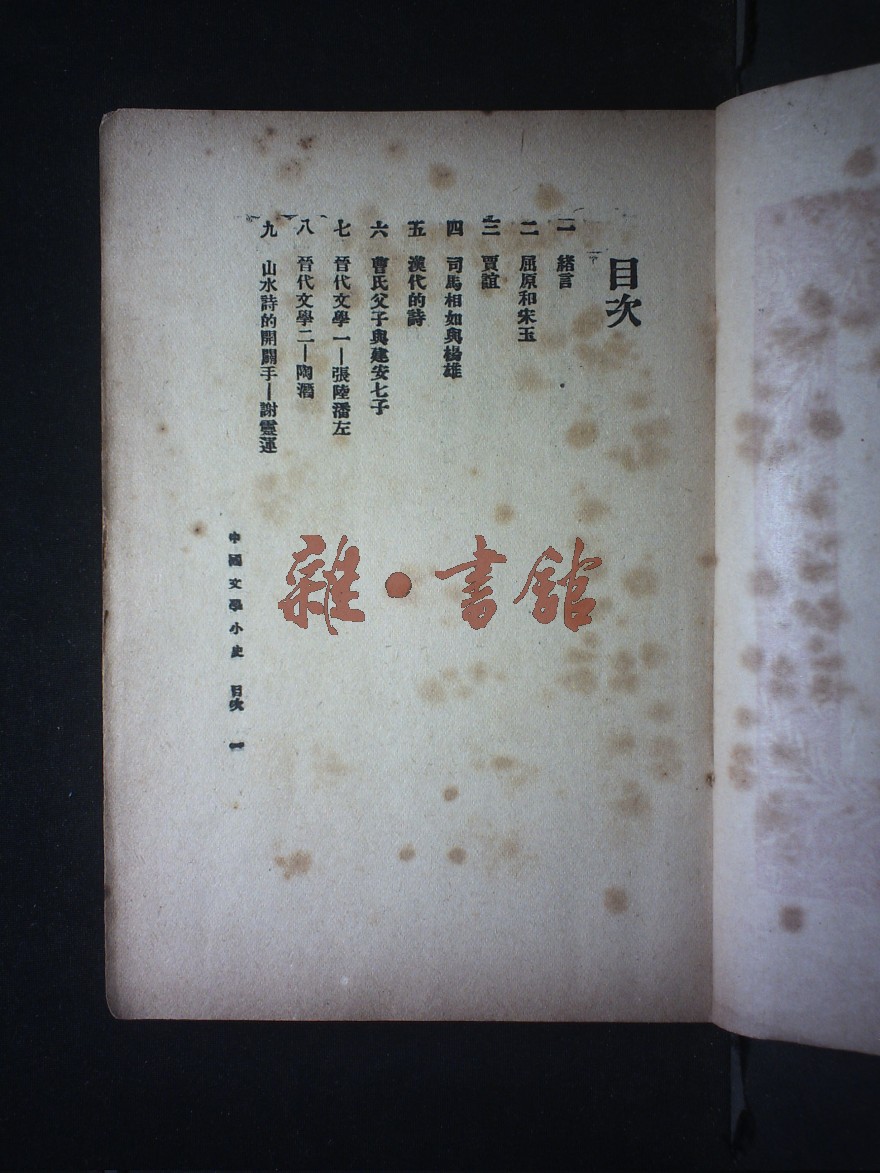 目次
一 緒言
二 屈原和宋玉
三 賈誼
四 司馬相如與楊雄
五 漢代的詩
六 曹氏父子與建安七子
七 晉代文學一—張陸潘左
八 晉代文學二—陶潛
九 山水詩的開闢手—謝靈運
中國文學小史 目次 一
雜·書館